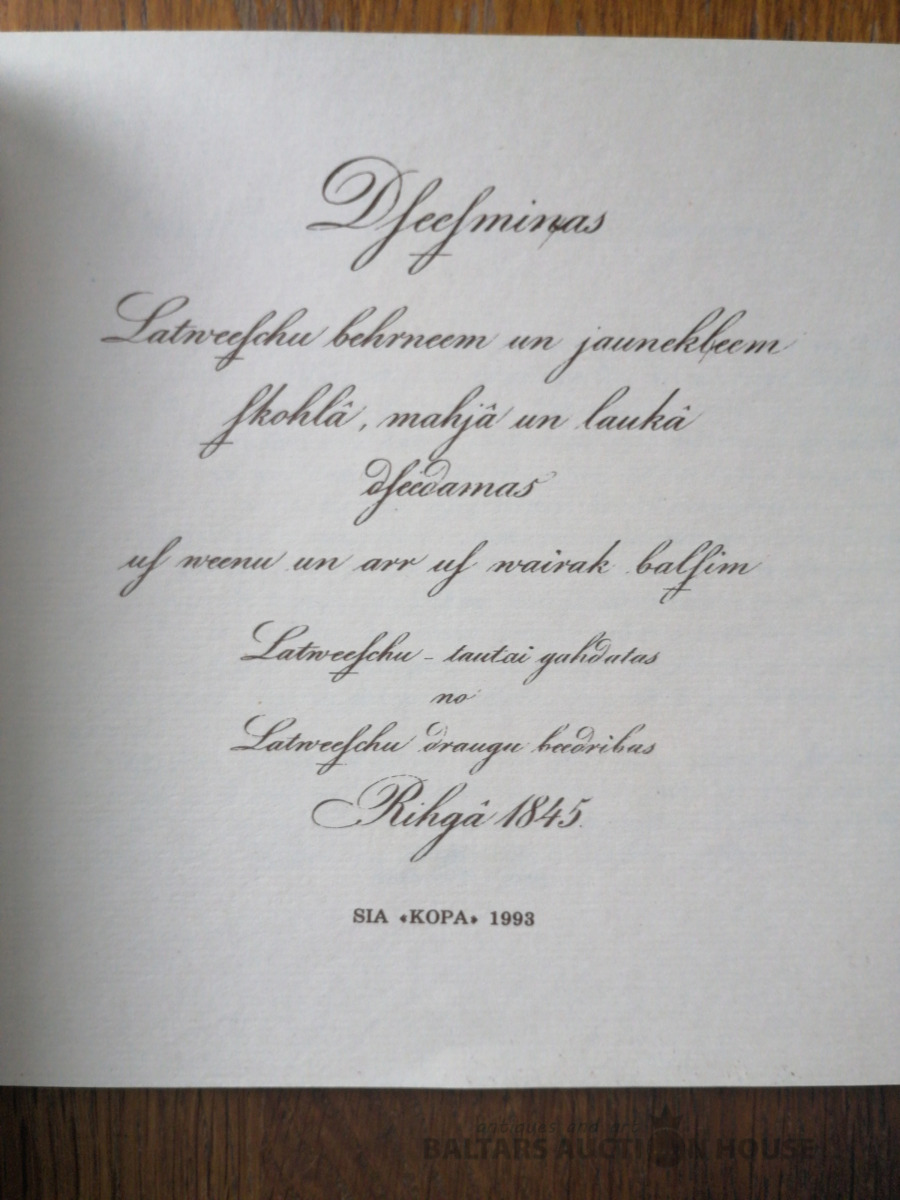 Dſeeſmiņas
Latweeſchu behrneem un jaunekļeem
ſkohlâ, mahjâ un laukâ
dſeedamas
uſ weenu un arr uſ wairak balſim
Latweeſchu - tautai gahdatas
no
Latweeſchu draugu beedribas
Rihgâ 1845.
SIA «KOPA» 1993
antiques and art
BALTARS AUCTION HOUSE